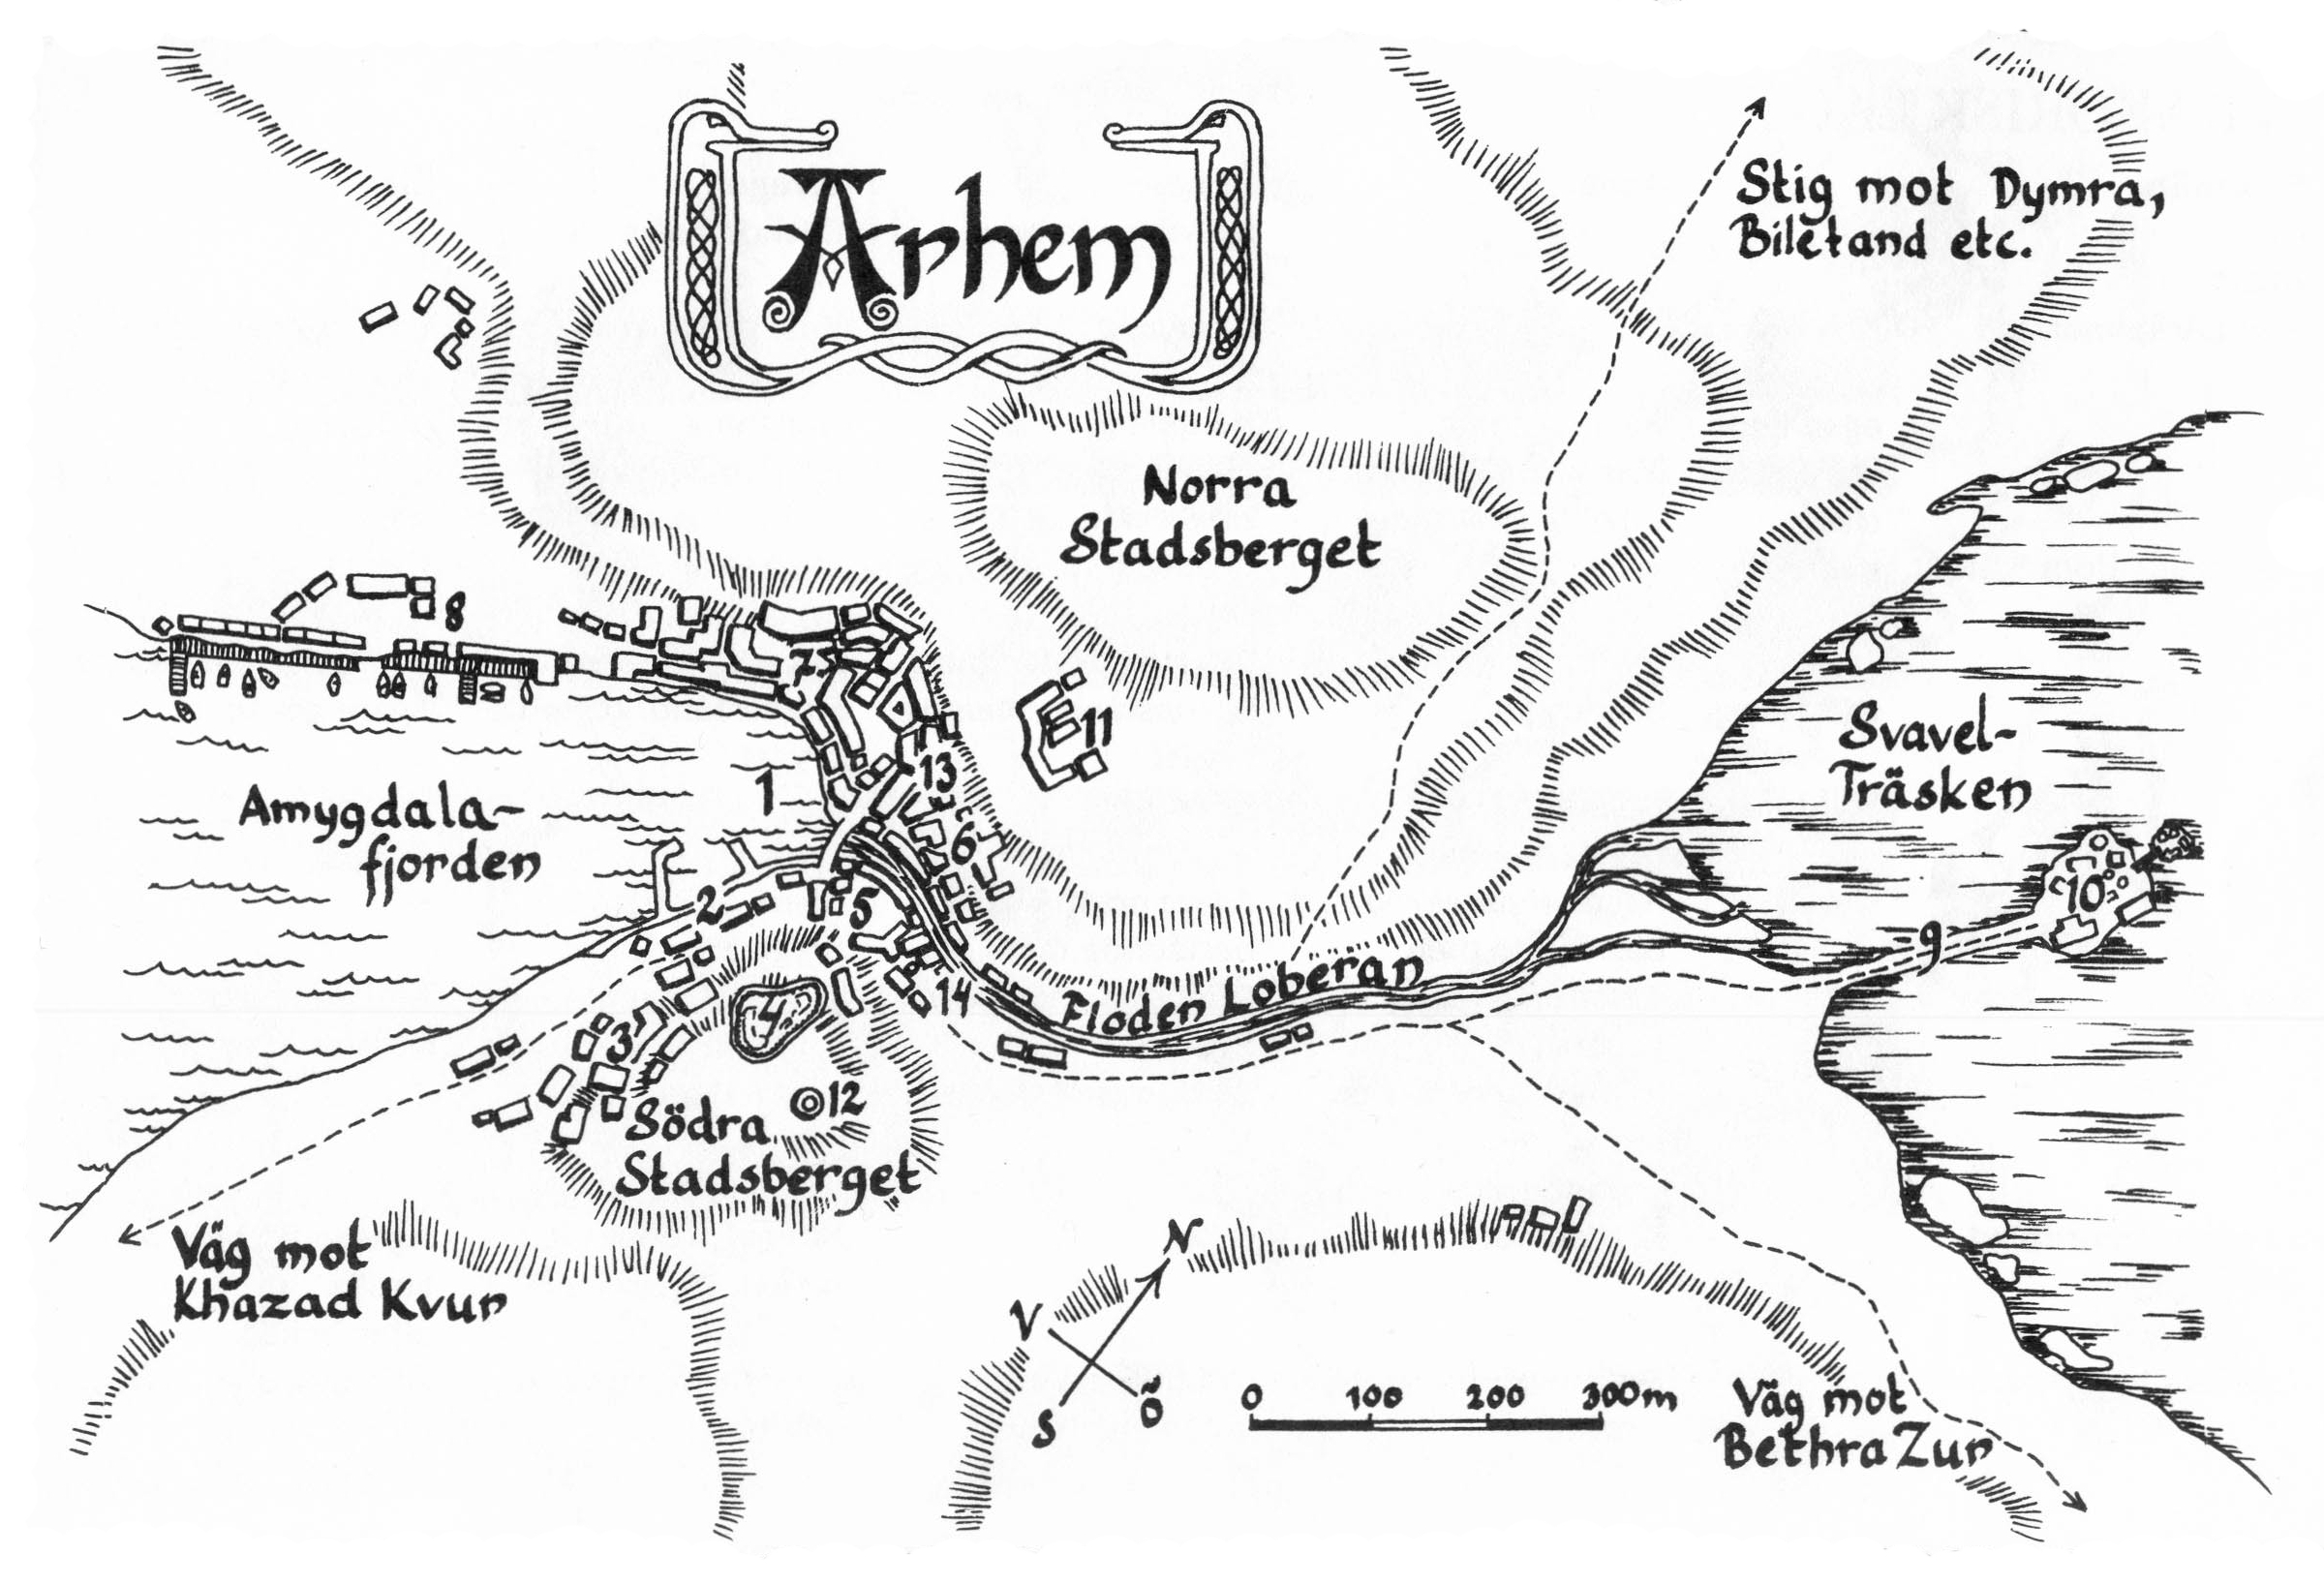 Arhem
Stig mot Dymra,
Biletand etc.
Norra
Stadsberget
8
7
11
Svavel-
Träsken
13
1
Amygdala-
fjorden
6
2
5
10
9
14
Floden Loberan
4
3
12
Södra
Stadsberget
Väg mot
Khazad Kvur
N
V
S
Ö
0 100 200 300m
Väg mot
Bethra Zur